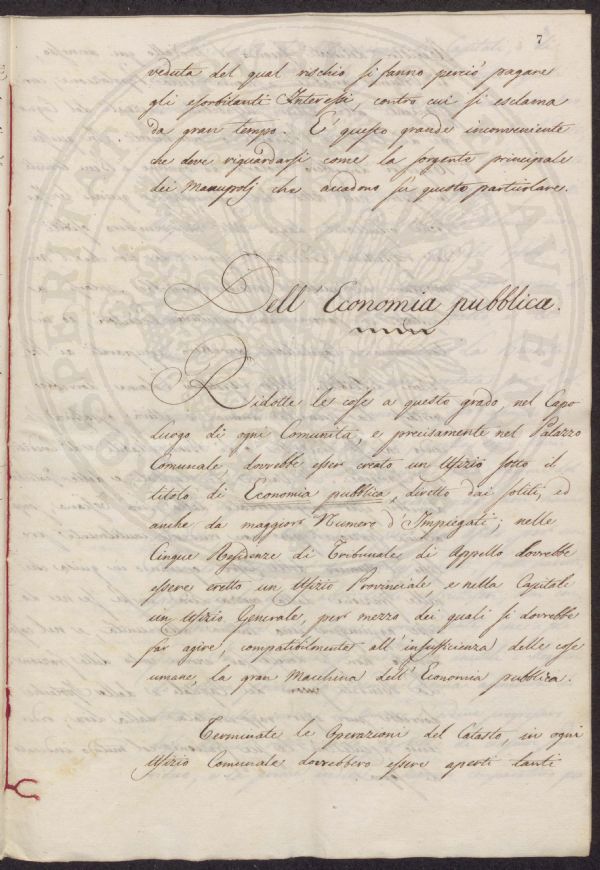 7
veduta del qual rischio si fanno perciò pagare
gli esorbitanti Interessi, contro cui si esclama
da gran tempo. E' questo grande inconveniente
che deve riguardarsi come la sorgente principale
dei Manupolj che accadono su questo particolare.
Dell Economia pubblica.
Ridotte le cose a questo grado nel Capo
Luogo di ogni Comunità, e precisamente nel Palazzo
Comunale, dovrebbe esser creato un Ufizio sotto il
titolo di Economia pubblica, diretto dai soliti, ed
anche da maggior Numero d'Impiegati; nelle
Cinque Residenze di Tribunale di Appello dovrebbe
essere eretto un Ufizio Provinciale, e nella Capitale
un Ufizio Generale, per mezzo dei quali si dovrebbe
far agire, compatibilmente all'insufficienza delle cose
umane, la gran Macchina dell'Economia pubblica.
Terminate le Operazioni del Catasto, in ogni
Ufizio Comunale dovrebbero essere aperti tanti